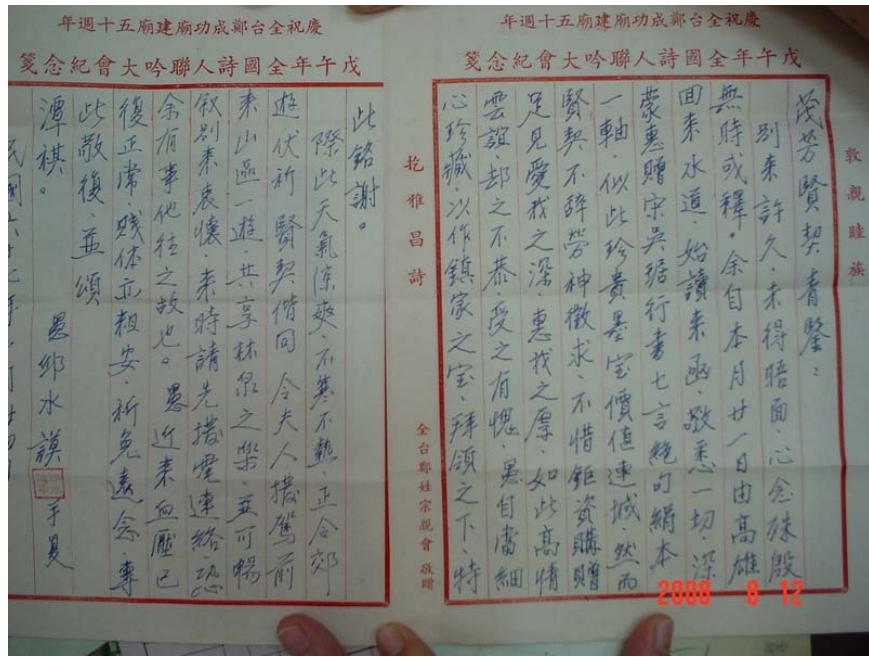 慶祝全台鄭成功廟建廟五十週年
戊午年全國詩人聯吟大會紀念箋
敦親睦族
茂芳賢契青鑒：
別来許久、未得晤面、心念殊殷
無時或釋。余自本月廿一日由高雄
回来水道、始讀来函、敬悉一切、深
蒙惠贈宋吳琚行書七言絕句絹本
一軸、似此珍貴墨宝價值連城、然而
賢契不辞勞神徵求、不惜鉅資購贈
足見愛我之深、惠我之厚、如此高情
雲誼、却之不恭受之有愧、愚自當細
心珍藏、以作鎮家之宝、拜領之下、特
扢雅昌詩
全台鄭姓宗親會 敬贈
慶祝全台鄭成功廟建廟五十週年
戊午年全國詩人聯吟大會紀念箋
此銘謝。
際此天氣涼爽、不寒不熱、正合郊
遊伏祈 賢契偕同 令夫人撥駕前
来山區一遊、共享林泉之樂、並可暢
叙別来衷懷、来時請先撥電連絡、恐
余有事他往之故也。愚近来血壓已
復正常、賤体亦粗安、祈免遠念、專
此敬復、並頌
潭祺。
愚邱水謨手复
民國六十七年
2008 8 12